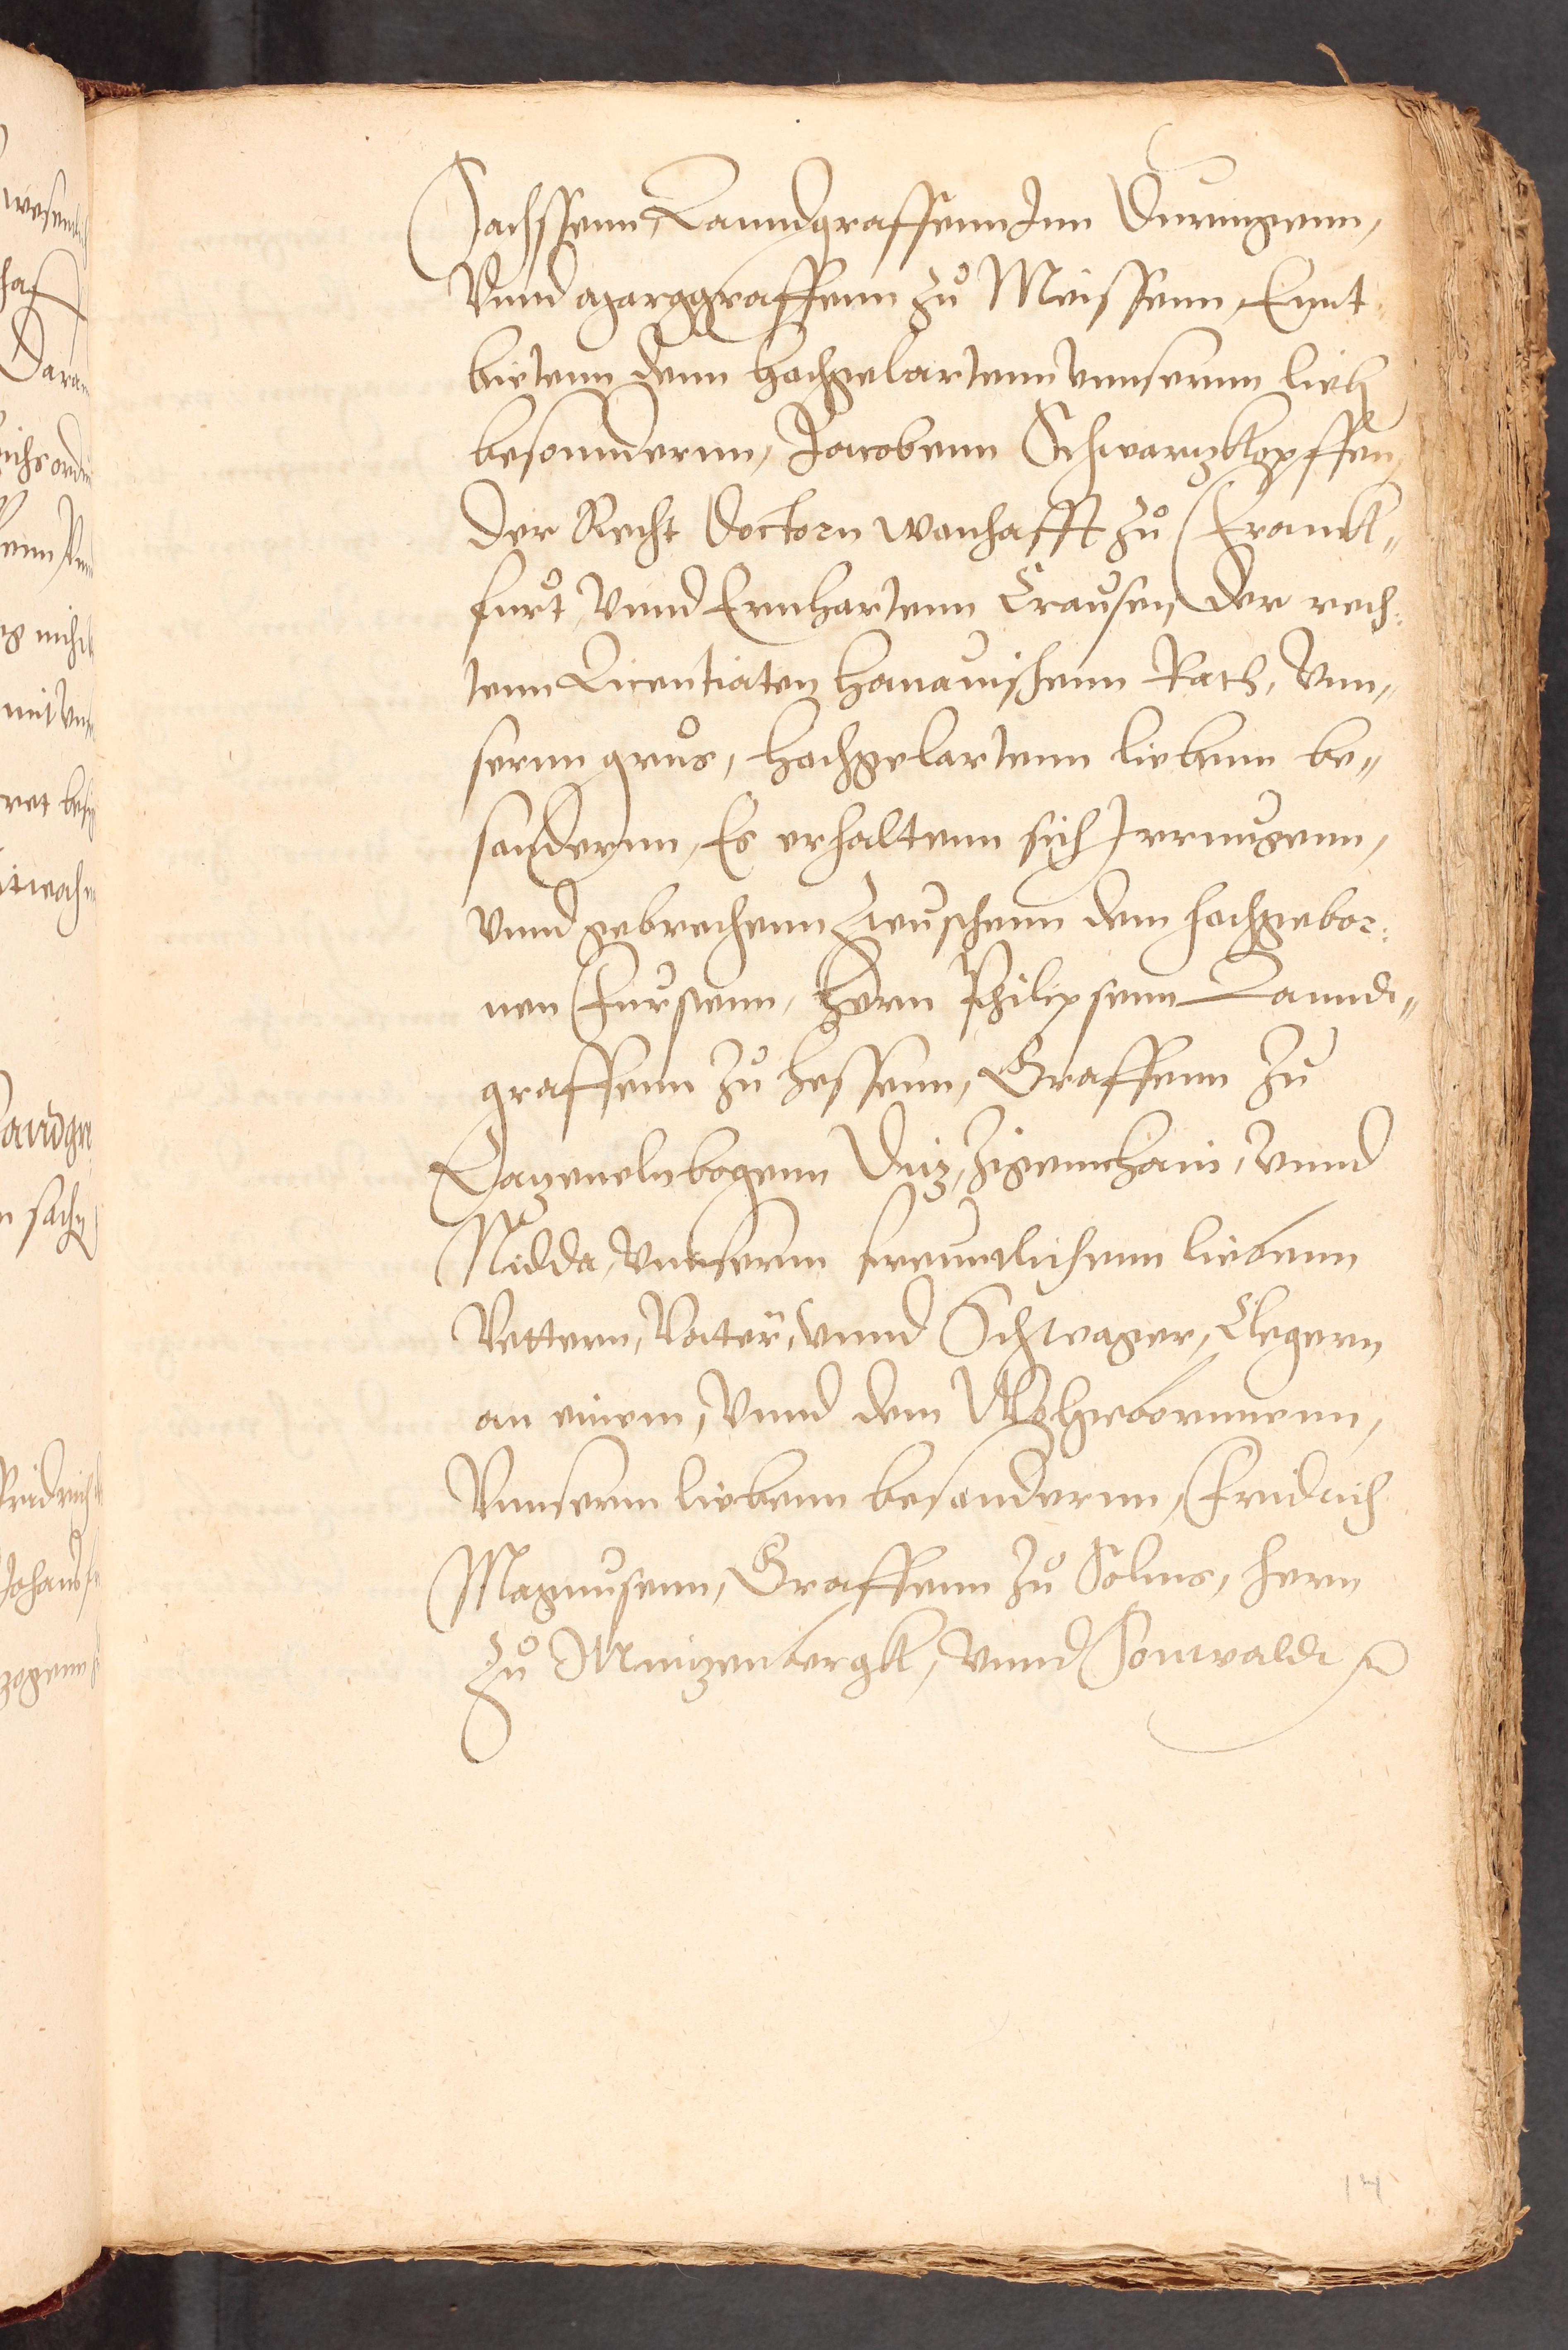 Sachssenn, Lanndgraffenn Inn Duringenn,
Vnnd Marggraffenn zu Meissenn, Ennt
bietenn denn hochgelartenn vnnsernn lieb
besonndernn, Jacobenn Schwartzkopffen,
der Recht Doctorn wonhafft zu Franck„
furt, Vnnd Ernhartenn Crausen, der rech:
tenn Licentiaten Hanauischenn Rath, Vnn„
sernn grus, Hochgelartenn liebenn be„
sondernn, Es erhaltenn sich Irrungenn,
vnnd gebrechenn Zwuschenn dem hochgebor:
nen Furstenn, hern Philipsenn Lanndt„
graffenn zu Hessenn, Graffenn zu
Catzenelnbogenn Dietz, Zigennhain, Vnnd
Nidda, Vnnsernn freuntlichenn liebenn
Vettern, Vater, vnnd Schwager, Clegern
an einem, Vnnd dem Wolgebornnenn,
Vnnsernn liebenn besondernn, Fridrich
Magnusenn, Graffenn zu Solms, hern
zu Mintzenbergk, Vnnd Sonwaldt
14